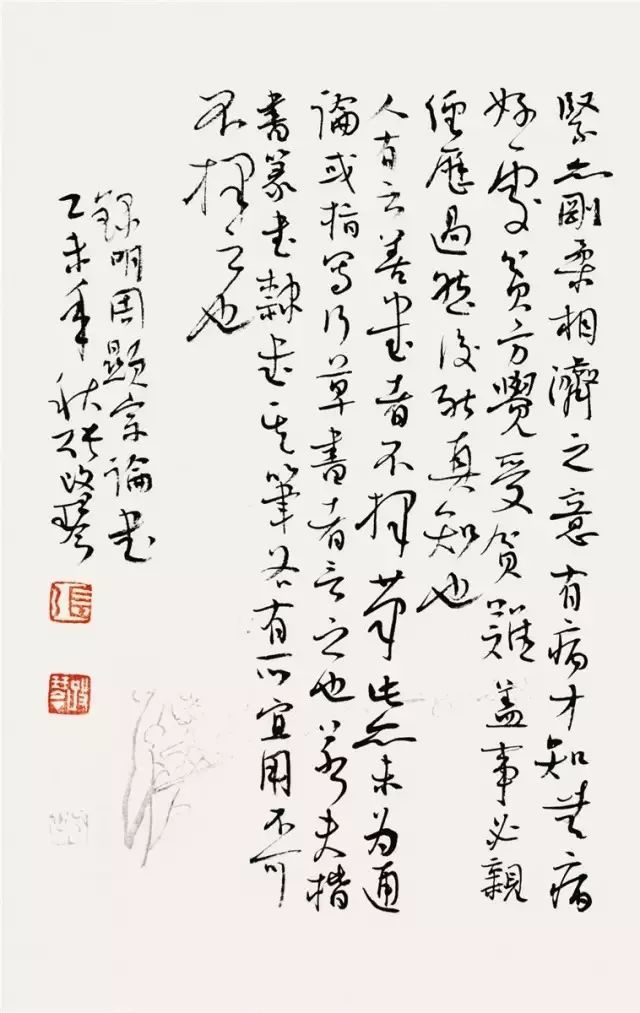 緊亦剛柔相濟之意有病才知無病
好處貧方覺受貧難蓋事必親
經歷過然後能真知也
人有言善書者不擇筆此亦未為通
論或指寫行草書者言之也若夫楷
書篆書隸書其筆各有所宜用不可
不擇之也
錄明周顯宗論書
乙未年秋張改琴
張
改琴